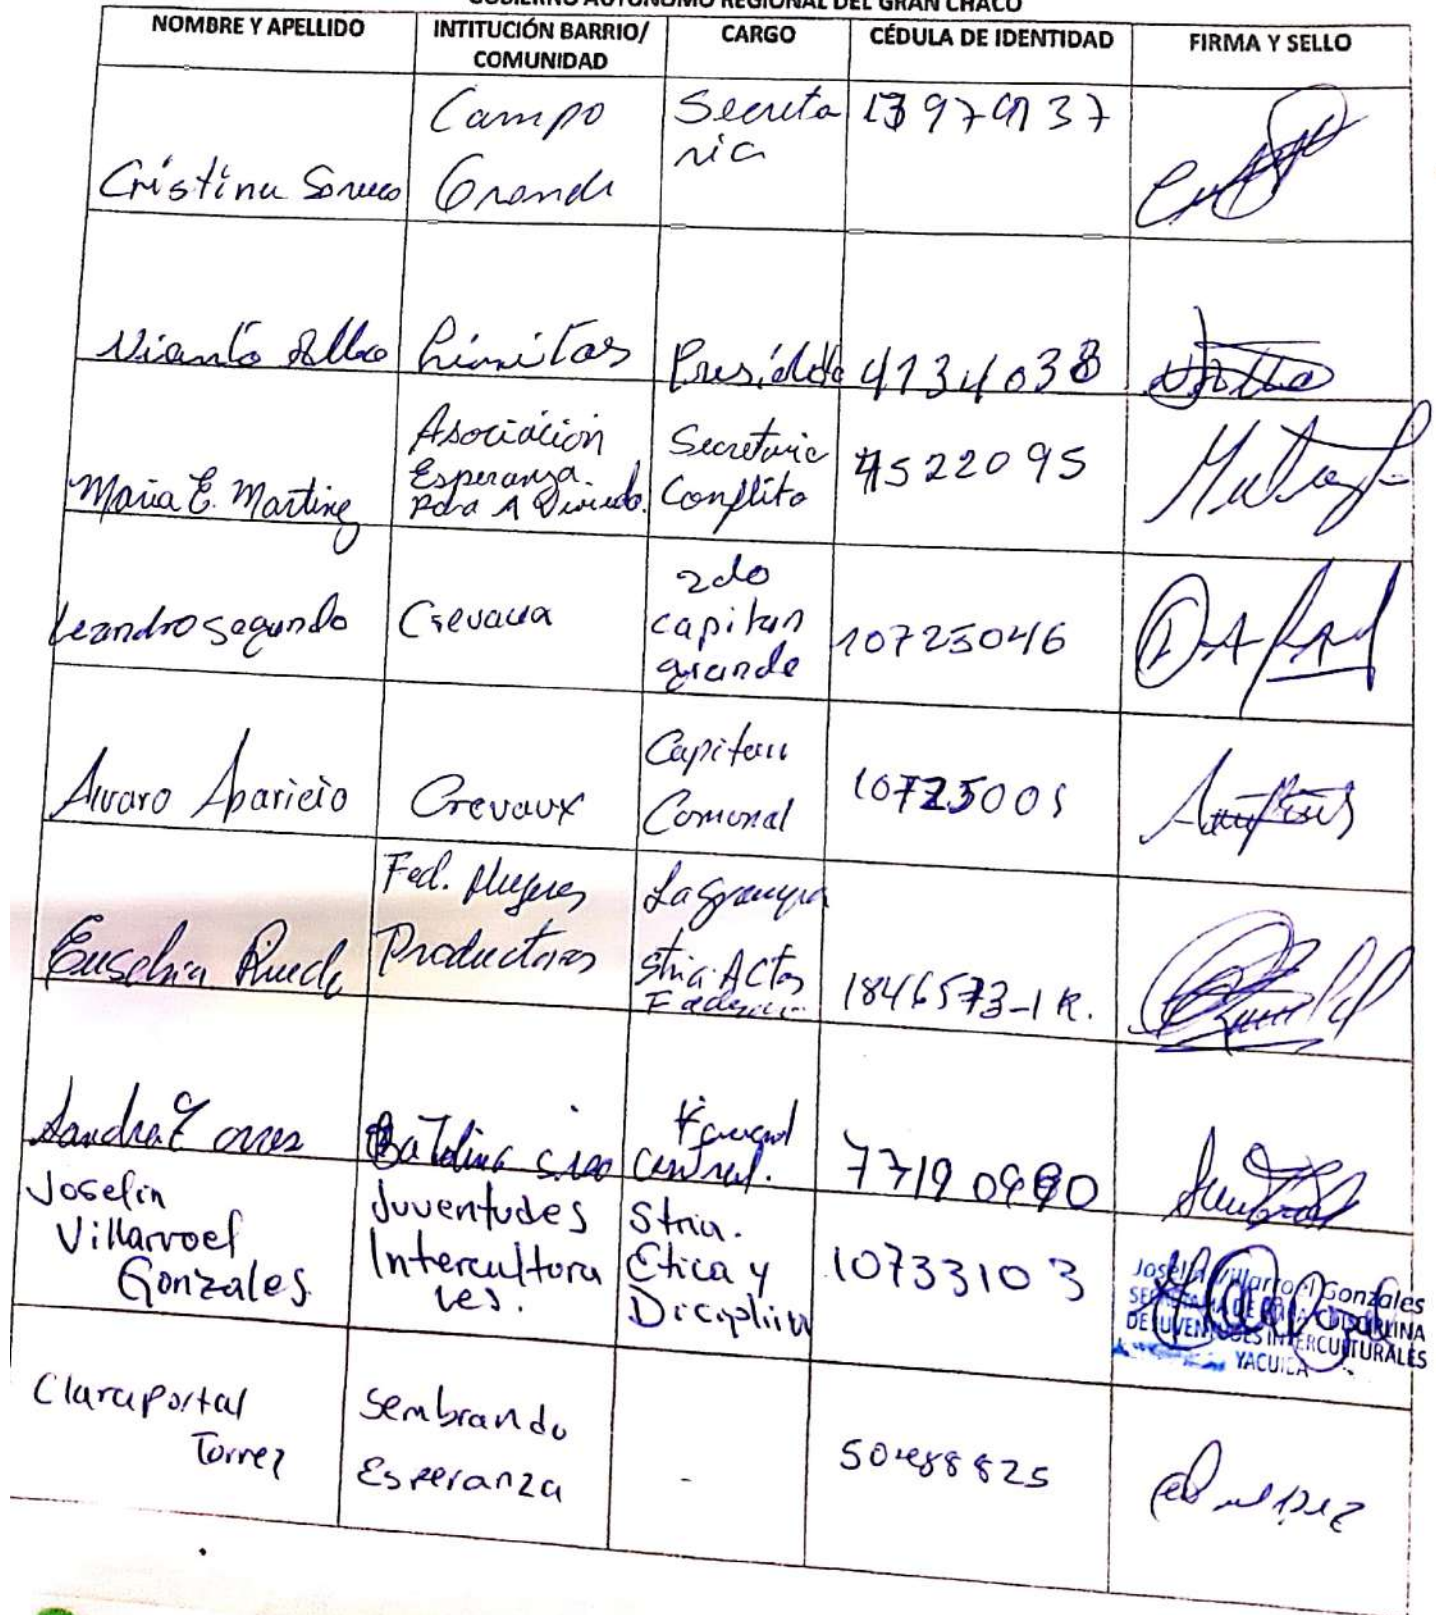 GOBIERNO AUTÓNOMO REGIONAL DEL GRAN CHACO
NOMBRE Y APELLIDO
INTITUCIÓN BARRIO/
COMUNIDAD
CARGO
CÉDULA DE IDENTIDAD
FIRMA Y SELLO
Cristina
Campo
Grande
Secreta
ria
Limitas
4134038
Maria E. Martinez
Asociación
Esperanza
Para
Secretaria
Conflito
4522095
Leandro segundo
Crevaux
2do
capitan
grande
10725046
Alvaro Aparicio
Crevaux
Capitan
Comunal
10725005
Eusebia Rueda
Fed. Mujeres
Productoras
stria. Actas
1846573-1R.
Sandra Torres
central.
Joselin
Villarroel
Gonzales
Juventudes
Intercultura
les.
Stria.
Etica y
Diciplin
10733103
Joselin Villarroel Gonzales
DE JUVENTUDES INTERCULTURALES
YACUIBA
Clara portal
Torrez
Sembrando
Esperanza
-